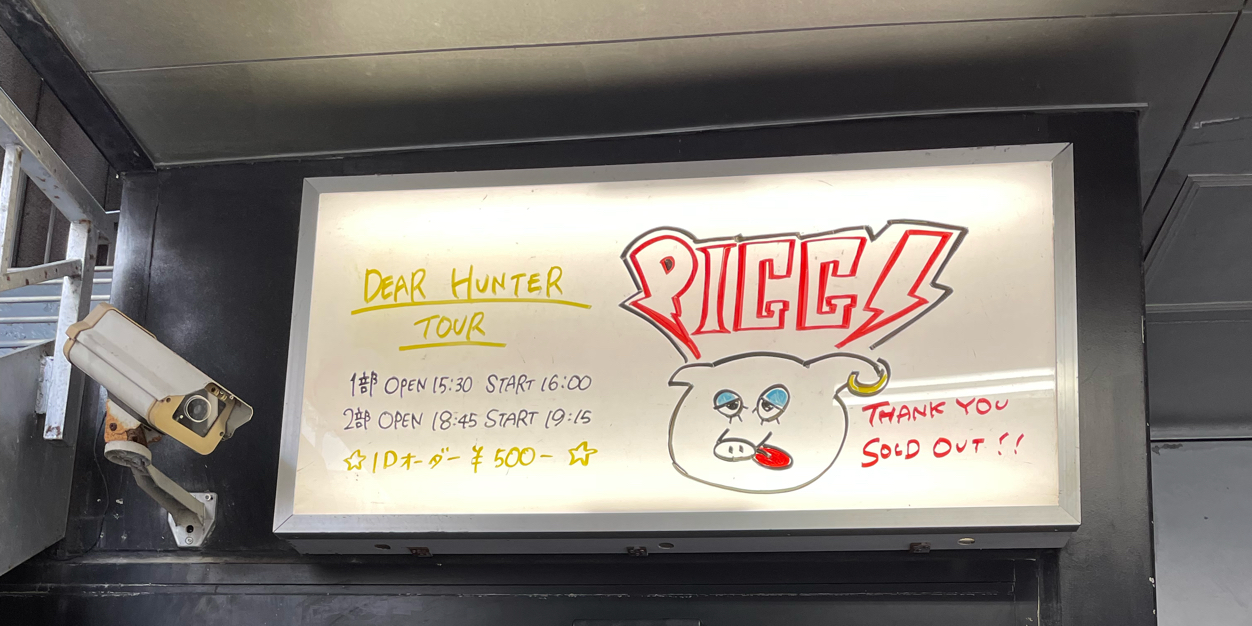 DEAR HUNTER
TOUR
1部 OPEN 15:30 START 16:00
2部 OPEN 18:45 START 19:15
☆1Dオーダー ¥500- ☆
PIGGS
THANK YOU
SOLD OUT !!